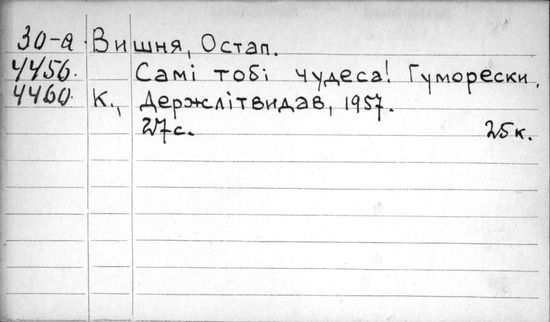 30-а Вишня, Остап.
4456. Самі тобі чудеса! Гуморески.
4460. К., Держлітвидав, 1957.
27с. 25к.